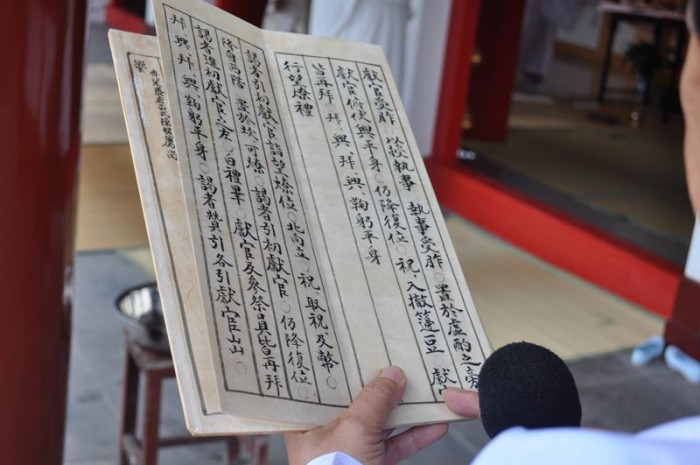 獻官受胙 以授執事 執事受胙 置於虛酌之旁
獻官俯伏興平身 ○仍降復位 ○祝入撤籩豆 獻官
皆再拜 拜 興 拜 興 鞠躬平身
行望燎禮
謁者引初獻官詣望燎位 ○北向立 祝取祝及幣 ○
降自西階 置於坎 可燎 謁者引初獻官 ○仍降復位 ○
謁者進初獻官之左 ○白禮畢 獻官及參祭員皆再拜
拜 興 拜 興 鞠躬平身 ○謁者贊引各引獻官出